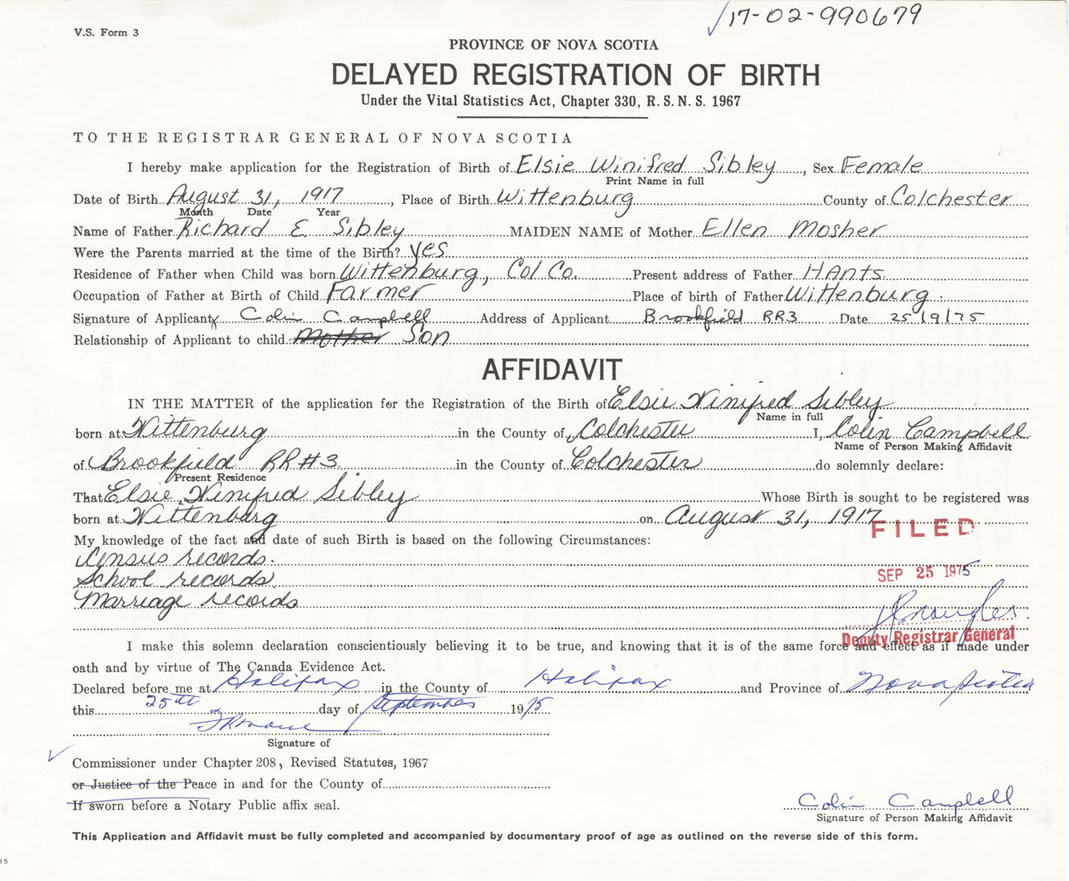 17-02-990679
V.S. Form 3
PROVINCE OF NOVA SCOTIA
DELAYED REGISTRATION OF BIRTH
Under the Vital Statistics Act, Chapter 330, R.S.N.S. 1967
TO THE REGISTRAR GENERAL OF NOVA SCOTIA
I hereby make application for the Registration of Birth of Elsie Winifred Sibley, Sex Female
Print Name in full
Date of Birth August 31, 1917, Place of Birth Wittenburg County of Colchester
Month Date Year
Name of Father Richard E Sibley MAIDEN NAME of Mother Ellen Mosher
Were the Parents married at the time of the Birth? Yes
Residence of Father when Child was born Wittenburg, Col Co. Present address of Father HAnts
Occupation of Father at Birth of Child Farmer Place of birth of Father Wittenburg.
Signature of Applicant Colin Campbell Address of Applicant Brookfield RR3 Date 25/9/75
Relationship of Applicant to child Mother Son
AFFIDAVIT
IN THE MATTER of the application for the Registration of the Birth of Elsie Winifred Sibley
Name in full
born at Wittenburg in the County of Colchester I, Colin Campbell
Name of Person Making Affidavit
of Brookfield RR#3 in the County of Colchester do solemnly declare:
Present Residence
That Elsie Winifred Sibley Whose Birth is sought to be registered was
born at Wittenburg on August 31, 1917
FILED
My knowledge of the fact and date of such Birth is based on the following Circumstances:
Census records.
School records
SEP 25 1975
Marriage records
Deputy Registrar General
I make this solemn declaration conscientiously believing it to be true, and knowing that it is of the same force and effect as if made under
oath and by virtue of The Canada Evidence Act.
Declared before me at Halifax in the County of Halifax and Province of Nova Scotia
this 25th day of September 1975
Signature of
Commissioner under Chapter 208, Revised Statutes, 1967
or Justice of the Peace in and for the County of
If sworn before a Notary Public affix seal.
Colin Campbell
Signature of Person Making Affidavit
This Application and Affidavit must be fully completed and accompanied by documentary proof of age as outlined on the reverse side of this form.